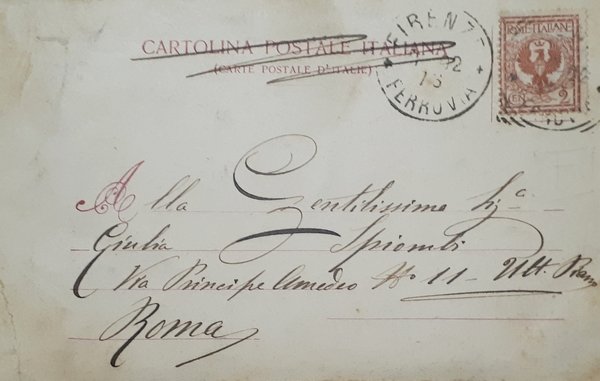 CARTOLINA POSTALE ITALIANA
(CARTE POSTALE D'ITALIE)
FIRENZE
FERROVIA
POSTE ITALIANE
2
Alla Gentilissima Sig.a
Giulia Spiombi
Via Principe Amedeo No 11 - Ult. Piano
Roma